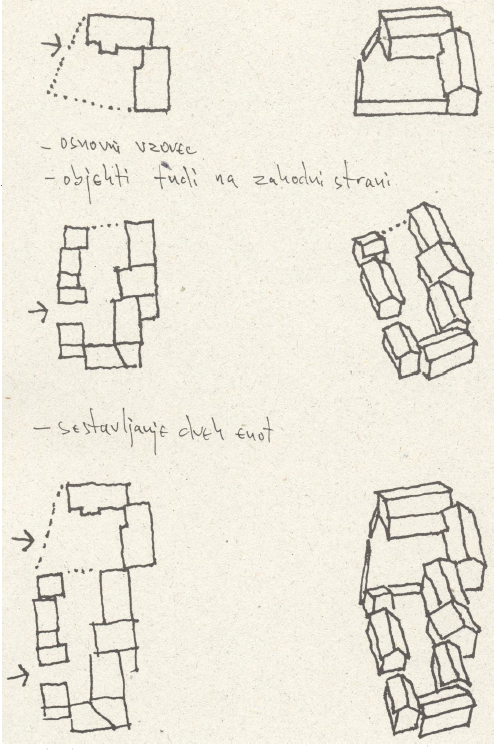 - osnovni vzorec
- objekti tudi na zahodni strani
- sestavljanje dveh enot